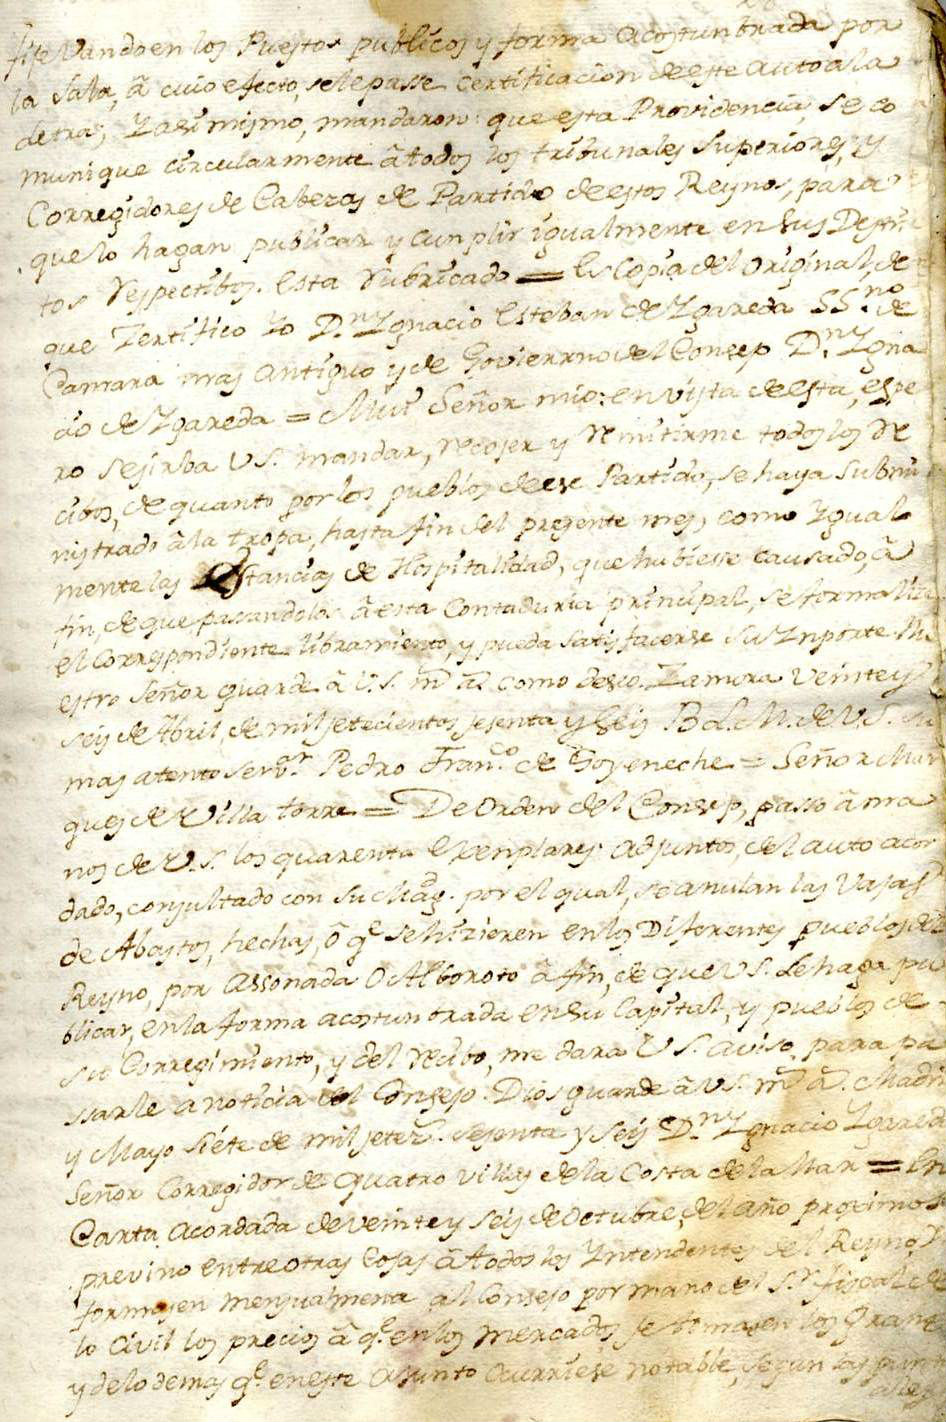 fixandoen los Puestos publicos y forma acostunbrada por
la Sala, â cuio efecto, sele passe Certificacion de este auto a la
letra; Y asi mismo, mandaron: que esta Providencia, se co
munique circularmente â todos los tribunales Superiores, y
Corregidores de Cabezas de Partido de estos Reynos, para
que lo hagan publicar y cunplir igualmente en sus Destri
tos respectibos. Esta rubricado = Es Copia del original, de
que Zertifico Yo D.n Ygnacio Esteban de Ygareda SS.no de
Camara mas antiguo y de Govierrno del Consejo D.n Ygna
cio de Ygareda = Mui Señor mio: en vista de esta, espe
ro sesirba V S. mandar, recojer y remitirme todos los Re
cibos, de quanto por los pueblos de ese Partido, se haya submi
nistrado â la tropa, hasta fin del presente mes, como Ygual
mente las Estancias de Hospitalidad, que hubiesse causado, â
fin, de que passandolos â esta Contaduria principal, se forma lize
el correspondiente libramiento, y pueda satisfacerse su Ynporte. Nu
estro Señor guarde â V. S. m.s a.s como deseo. Zamora veinte y
seis de Abril, de mil setecientos sesenta y Seis B L. M. de V. S. su
mas atento serv.r Pedro Fran.co de Goyeneche = Señor Mar
ques de Villa torre = De Orden del Consejo, passo â ma
nos de V. S. los quarenta Exenplares adjuntos, del auto acor
dado, consultado con su Mag.d por el qual, se anulan las Vajas
de Abastos, hechas, ô q.e se hizieren en los Diferentes pueblos del
Reyno, por Assonada O Alboroto â fin, de que V S. Le haga pu
blicar, en la forma acostunbrada en su Capital, y pueblos de
su Corregimiento, y del recibo, me dara V S. aviso, para pa
ssarle a noticia del Consejo. Dios guarde â V S. m.s a.s Madri
y Mayo Siéte de mil setez.s sesenta y seis D.n Ygnacio Ygareda
Señor Corregidor de quatro villas de la Costa de la Mar = En
Carta acordada de veinte y seis de Octubre, del año proximo
previno entre otras Cosas â todos los Yntendentes del Reyno,
formasen mensualmente al Consejo por mano del S.r fiscal de
lo Civil los precios â q.e en los Mercados se tomasen los Granos
y de lo demas q.e en este asunto ocurriese notable, segun las